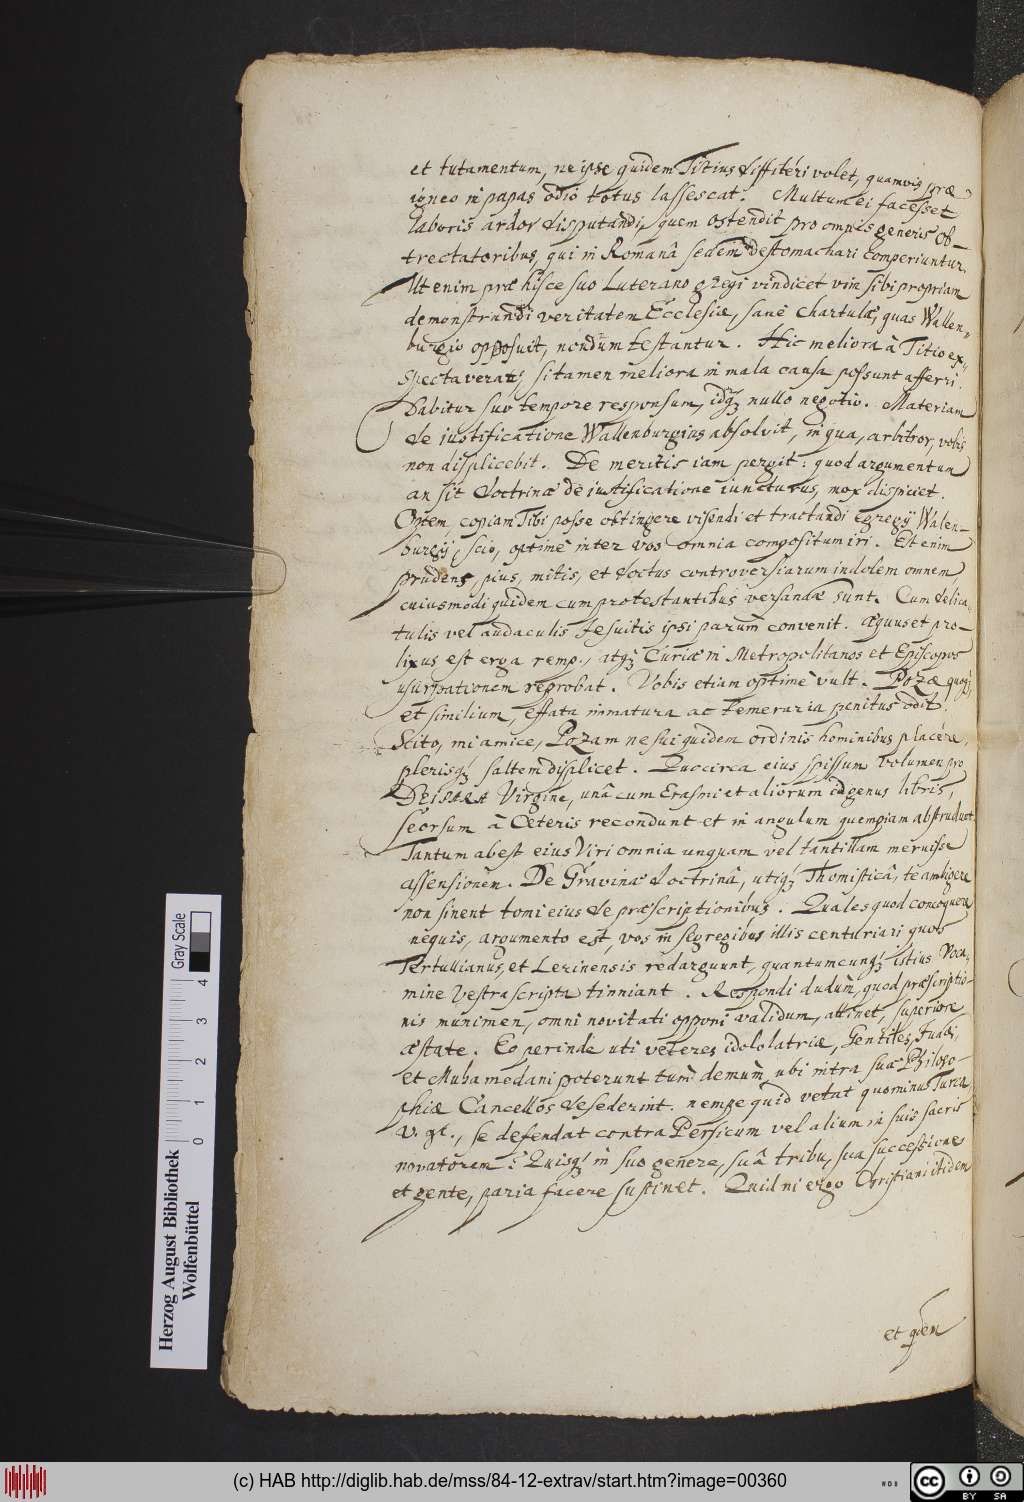 et tutamentum, ne ipse quidem Titius diffitéri volet, quamvis præ
in papas odio totus lassescat. Multum ei facesset
laboris ardor disputandi, quem ostendit pro omnis generis ob-
trectatoribus, qui in Romanâ sedem destomachari comperiuntur.
Ut enim præ hisce suo Luterano gregi vindicet vim sibi propriam
demonstrandi veritatem Ecclesiæ, sanè chartulæ, quas Wallen-
burgio opposuit, nondum testantur. Hic meliora à Titio ex-
spectaverat, si tamen meliora in mala causa possunt afferri.
Dabitur suo tempore responsum, idq; nullo negotio. Materiam
de iustificatione Wallenburgius absolvit, in qua, arbitror, vobis
non displicebit. De meritis iam pergit: quod argumentum
an sit doctrinæ de iustificatione iuncturus, mox dispiciet.
Optem copiam Tibi posse obtingere visendi et tractandi egregij Walen-
burgij, scio, optimè inter vos omnia compositum iri. Est enim
prudens, pius, mitis, et doctus controversiarum indolem omnem,
cuiusmodi quidem cum protestantibus versandæ sunt. Cum delica-
tulis vel audaculis Iesuitis ipsi parum convenit. Æquus et pro-
lixus est erga remp., atq; Curiæ in Metropolitanos et Episcopos
usurpationem reprobat. Vobis etiam optimè vult. Pozæ quoq;
et similium, effata immatura ac temeraria penitus odit.
Scito, mi amice, Pozam ne sui quidem ordinis hominibus placére,
plerisq; saltem displicet. Quocirca eius spissum volumen pro
DEIPARA Virgine, unâ cum Erasmi et aliorum id genus libris,
seorsum à Cæteris recondunt et in angulum quempiam abstrudunt.
Tantum abest eius Viri omnia unquam vel tantillam meruisse
assensionem. De Gravinæ doctrinâ, utiq; Thomisticâ, te ambigere
non sinent tomi eius de præscriptionibus. Quales quod concoquere
nequis, argumento est, vos in segregibus illis centuriari quos
Tertullianus, et Lerinensis redarguunt, quantumcunq; istius
mine vestra scripta tinniant. Respondi dudum, quod præscriptio-
nis munimen, omni novitati opponi validum, attinet, superiore
æstate. Eo perinde uti veteres idololatriæ, Gentiles, Iudæi,
et Muhamedani poterunt tum demum, ubi intra suæ Philoso-
phiæ Cancellos desederint. nempe quid vetat quominus Turca,
v. gt., se defendat contra Persicum vel alium in suis sacris
novatorem? Quisq; in suo genere, suâ tribu, sua successione
et gente, paria facere sustinet. Quidni ergo Christiani itidem
et quem
Herzog August Bibliothek
Wolfenbüttel
0 1 2 3 4
Gray Scale
(c) HAB http://diglib.hab.de/mss/84-12-extrav/start.htm?image=00360
cc BY SA